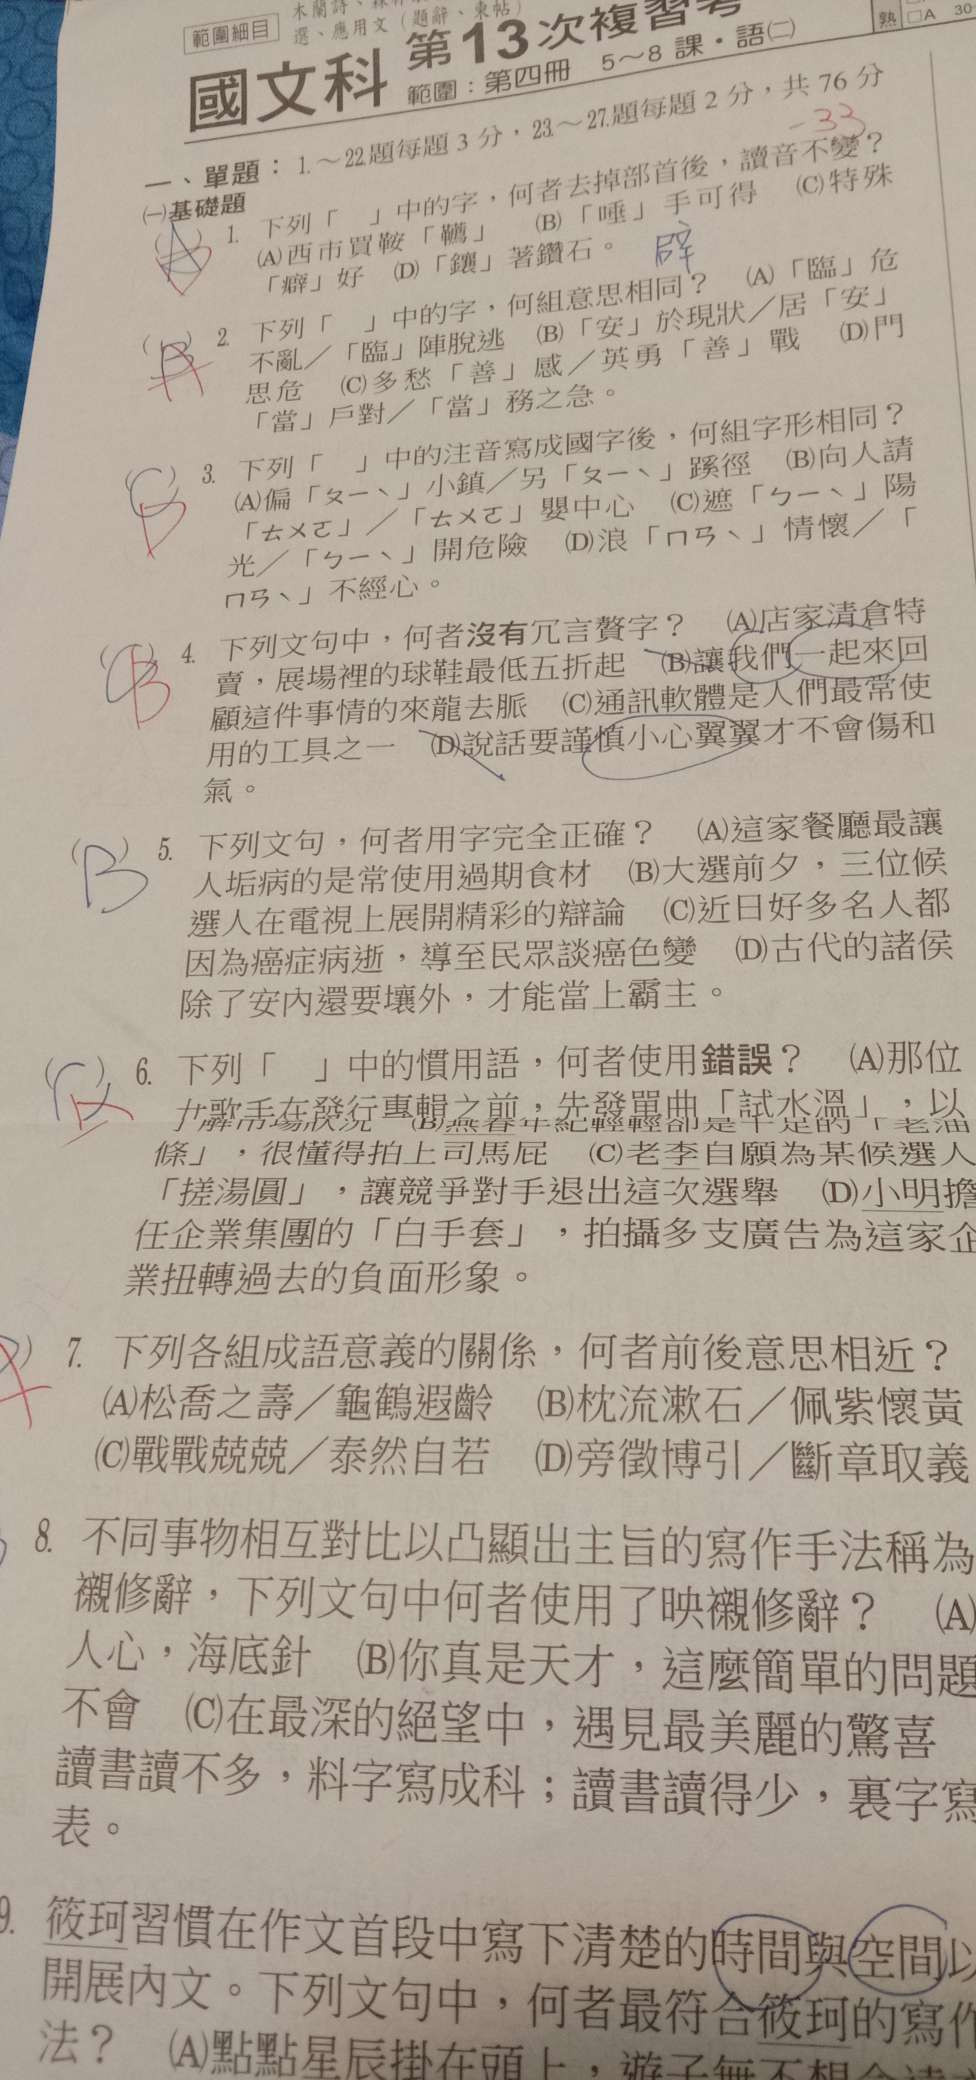 範圍細目
木蘭詩、
選、應用文（題辭、柬帖）
國文科 第13次複習考
範圍：第四冊 5～8 課・語㈡
熟 □A 30
一、單題：1.～22.題每題 3 分，23.～27.題每題 2 分，共 76 分
-33
㈠基礎題
(A) 1. 下列「 」中的字，何者去掉部首後，讀音不變？
(A)西市買鞍「韉」 (B)「唾」手可得 (C)特殊
「癖」好 (D)「鑲」著鑽石。
辟
( ) 2. 下列「 」中的字，何組意思相同？ (A)「臨」危
不亂／「臨」陣脫逃 (B)「安」於現狀／居「安」
思危 (C)多愁「善」感／英勇「善」戰 (D)門
「當」戶對／「當」務之急。
(C) D 3. 下列「 」中的注音寫成國字後，何組字形相同？
(A)偏「ㄆㄧˋ」小鎮／另「ㄆㄧˋ」蹊徑 (B)向人請
「ㄊㄨㄛ」／「ㄊㄨㄛ」嬰中心 (C)遮「ㄅㄧˋ」陽
光／「ㄅㄧˋ」開危險 (D)浪「ㄇㄢˋ」情懷／「
ㄇㄢˋ」不經心。
(C) B 4. 下列文句中，何者沒有冗言贅字？ (A)店家清倉特
賣，展場裡的球鞋最低五折起 (B)讓我們一起來回
顧這件事情的來龍去脈 (C)通訊軟體是人們最常使
用的工具之一 (D)說話要謹慎小心翼翼才不會傷和
氣。
(B) 5. 下列文句，何者用字完全正確？ (A)這家餐廳最讓
人垢病的是常使用過期食材 (B)大選前夕，三位候
選人在電視上展開精彩的辯論 (C)近日好多名人都
因為癌症病逝，導至民眾談癌色變 (D)古代的諸侯
除了安內還要壤外，才能當上霸主。
( ) 6. 下列「 」中的慣用語，何者使用錯誤？ (A)那位
女歌手在發行專輯之前，先發單曲「試水溫」，以
了解市場狀況 (B)燕春年紀輕輕卻是十足的「老油
條」，很懂得拍上司馬屁 (C)老李自願為某候選人
「搓湯圓」，讓競爭對手退出這次選舉 (D)小明擔
任企業集團的「白手套」，拍攝多支廣告為這家企
業扭轉過去的負面形象。
7. 下列各組成語意義的關係，何者前後意思相近？
(A)松喬之壽／龜鶴遐齡 (B)枕流漱石／佩紫懷黃
(C)戰戰兢兢／泰然自若 (D)旁徵博引／斷章取義
8. 不同事物相互對比以凸顯出主旨的寫作手法稱為
襯修辭，下列文句中何者使用了映襯修辭？ (A)
人心，海底針 (B)你真是天才，這麼簡單的問題
不會 (C)在最深的絕望中，遇見最美麗的驚喜
讀書讀不多，料字寫成科；讀書讀得少，裏字寫
表。
9. 筱珂習慣在作文首段中寫下清楚的時間與空間以
開展內文。下列文句中，何者最符合筱珂的寫作
法？ (A)點點星辰掛在頭上，遊子無不想